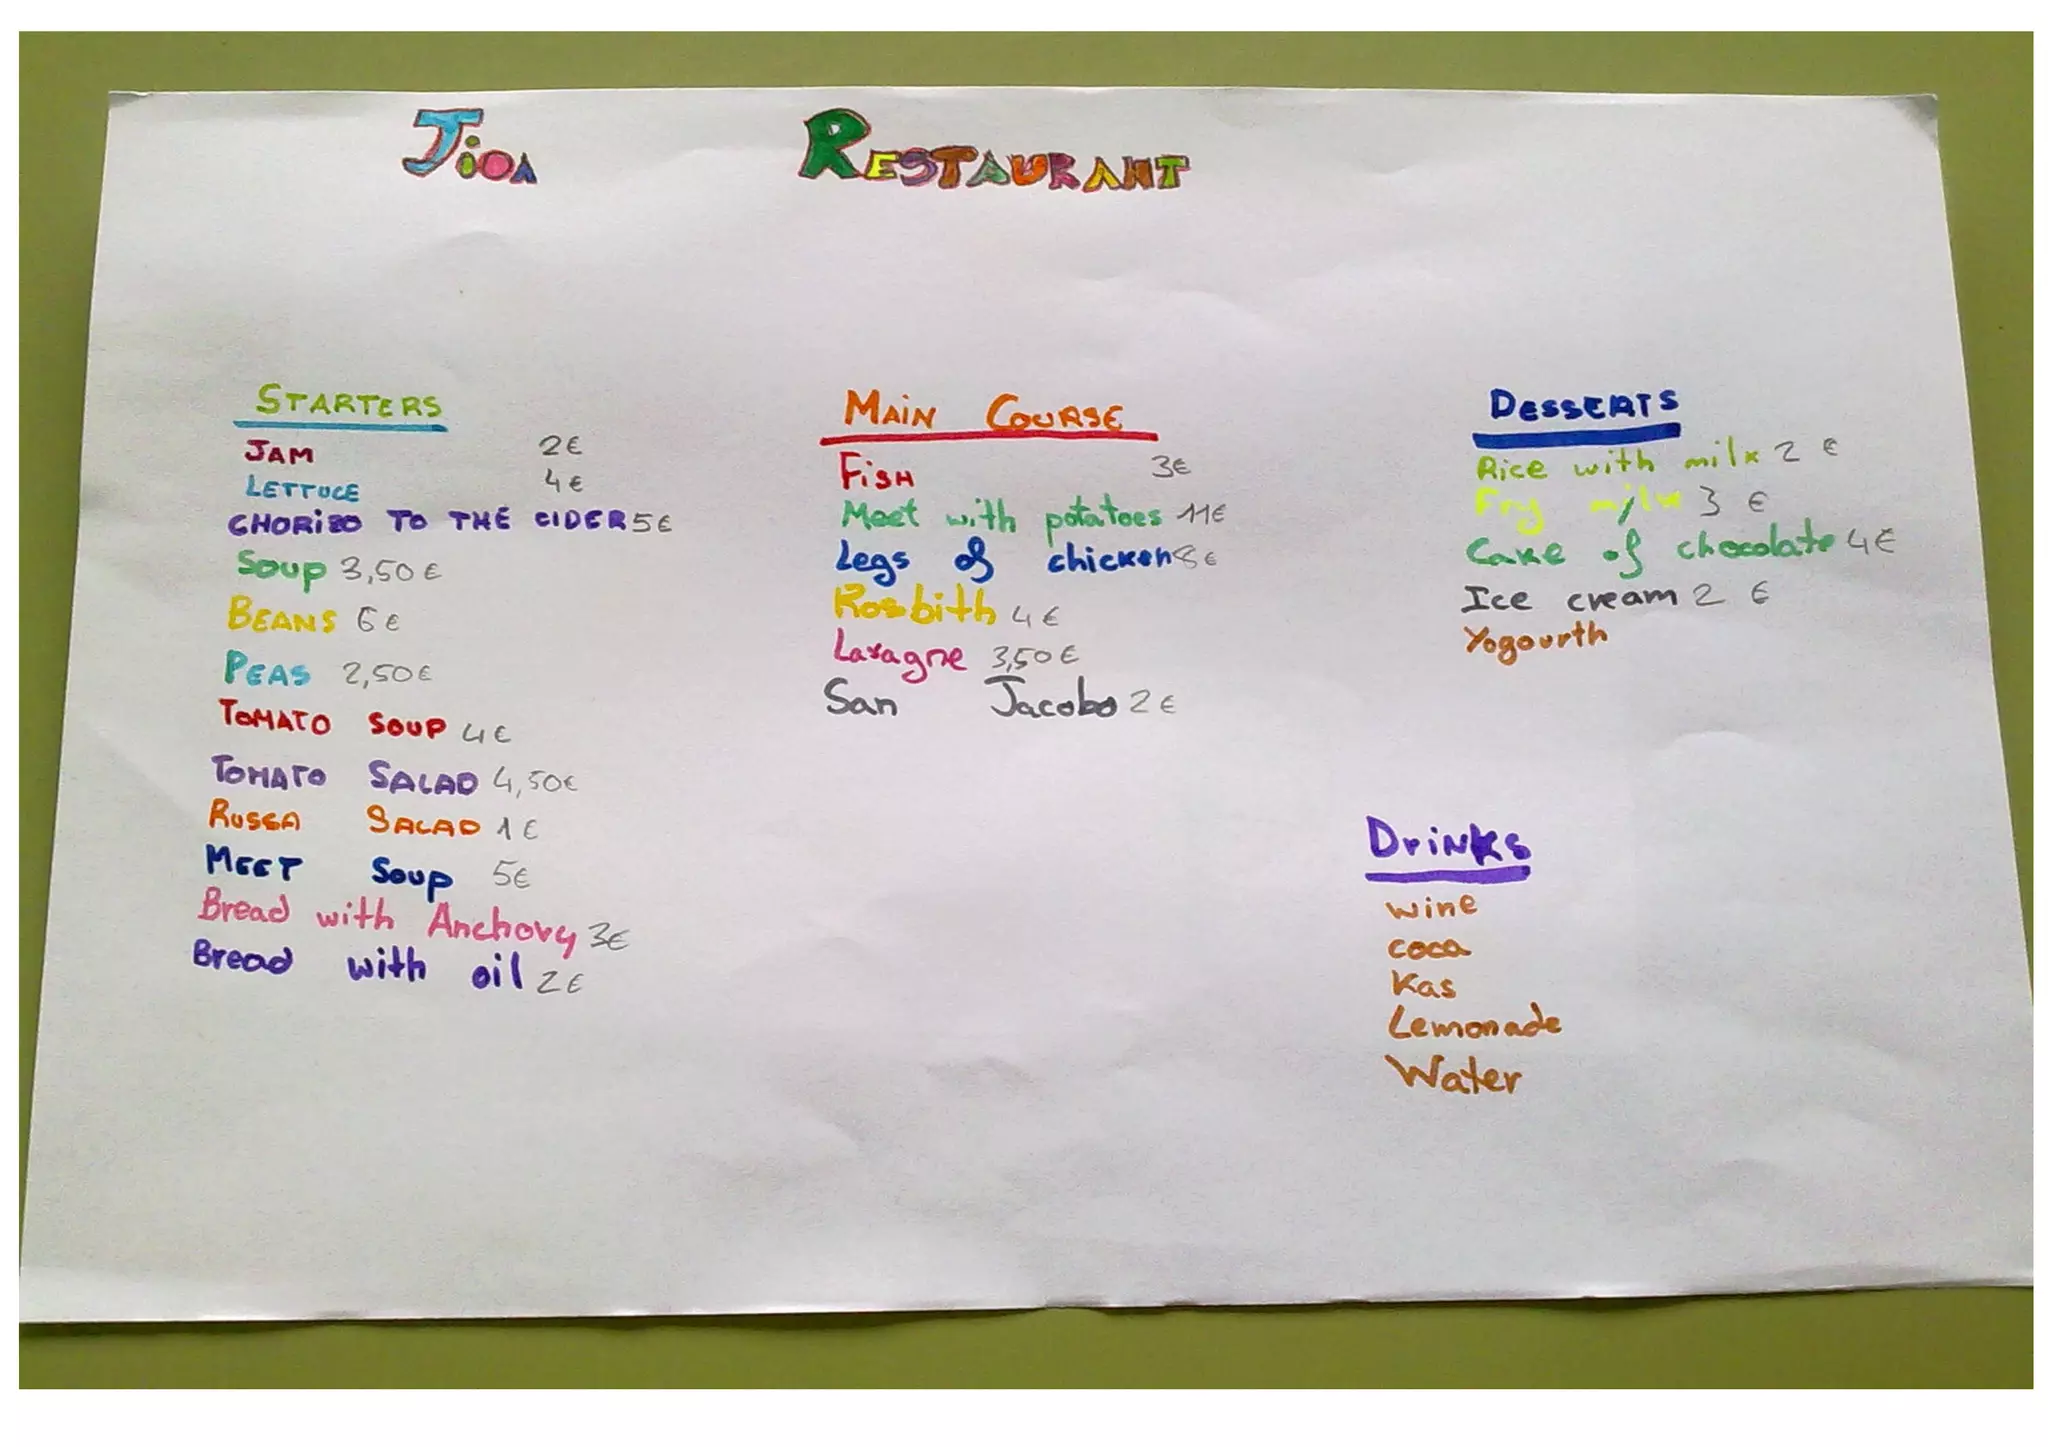 Jioa Restaurant
STARTERS
JAM 2€
LETTUCE 4€
CHORIZO TO THE CIDER 5€
Soup 3,50€
BEANS 6€
PEAS 2,50€
TOMATO SOUP 4€
TOMATO SALAD 4,50€
RUSSA SALAD 1€
MEET Soup 5€
Bread with Anchovy 3€
Bread with oil 2€
MAIN COURSE
FISH 3€
Meet with potatoes 11€
Legs of chicken 8€
Rosbith 4€
Lasagne 3,50€
San Jacobo 2€
DESSERTS
Rice with milk 2 €
Fry milk 3 €
Cake of chocolate 4€
Ice cream 2 €
Yogourth
Drinks
wine
coca
Kas
Lemonade
Water